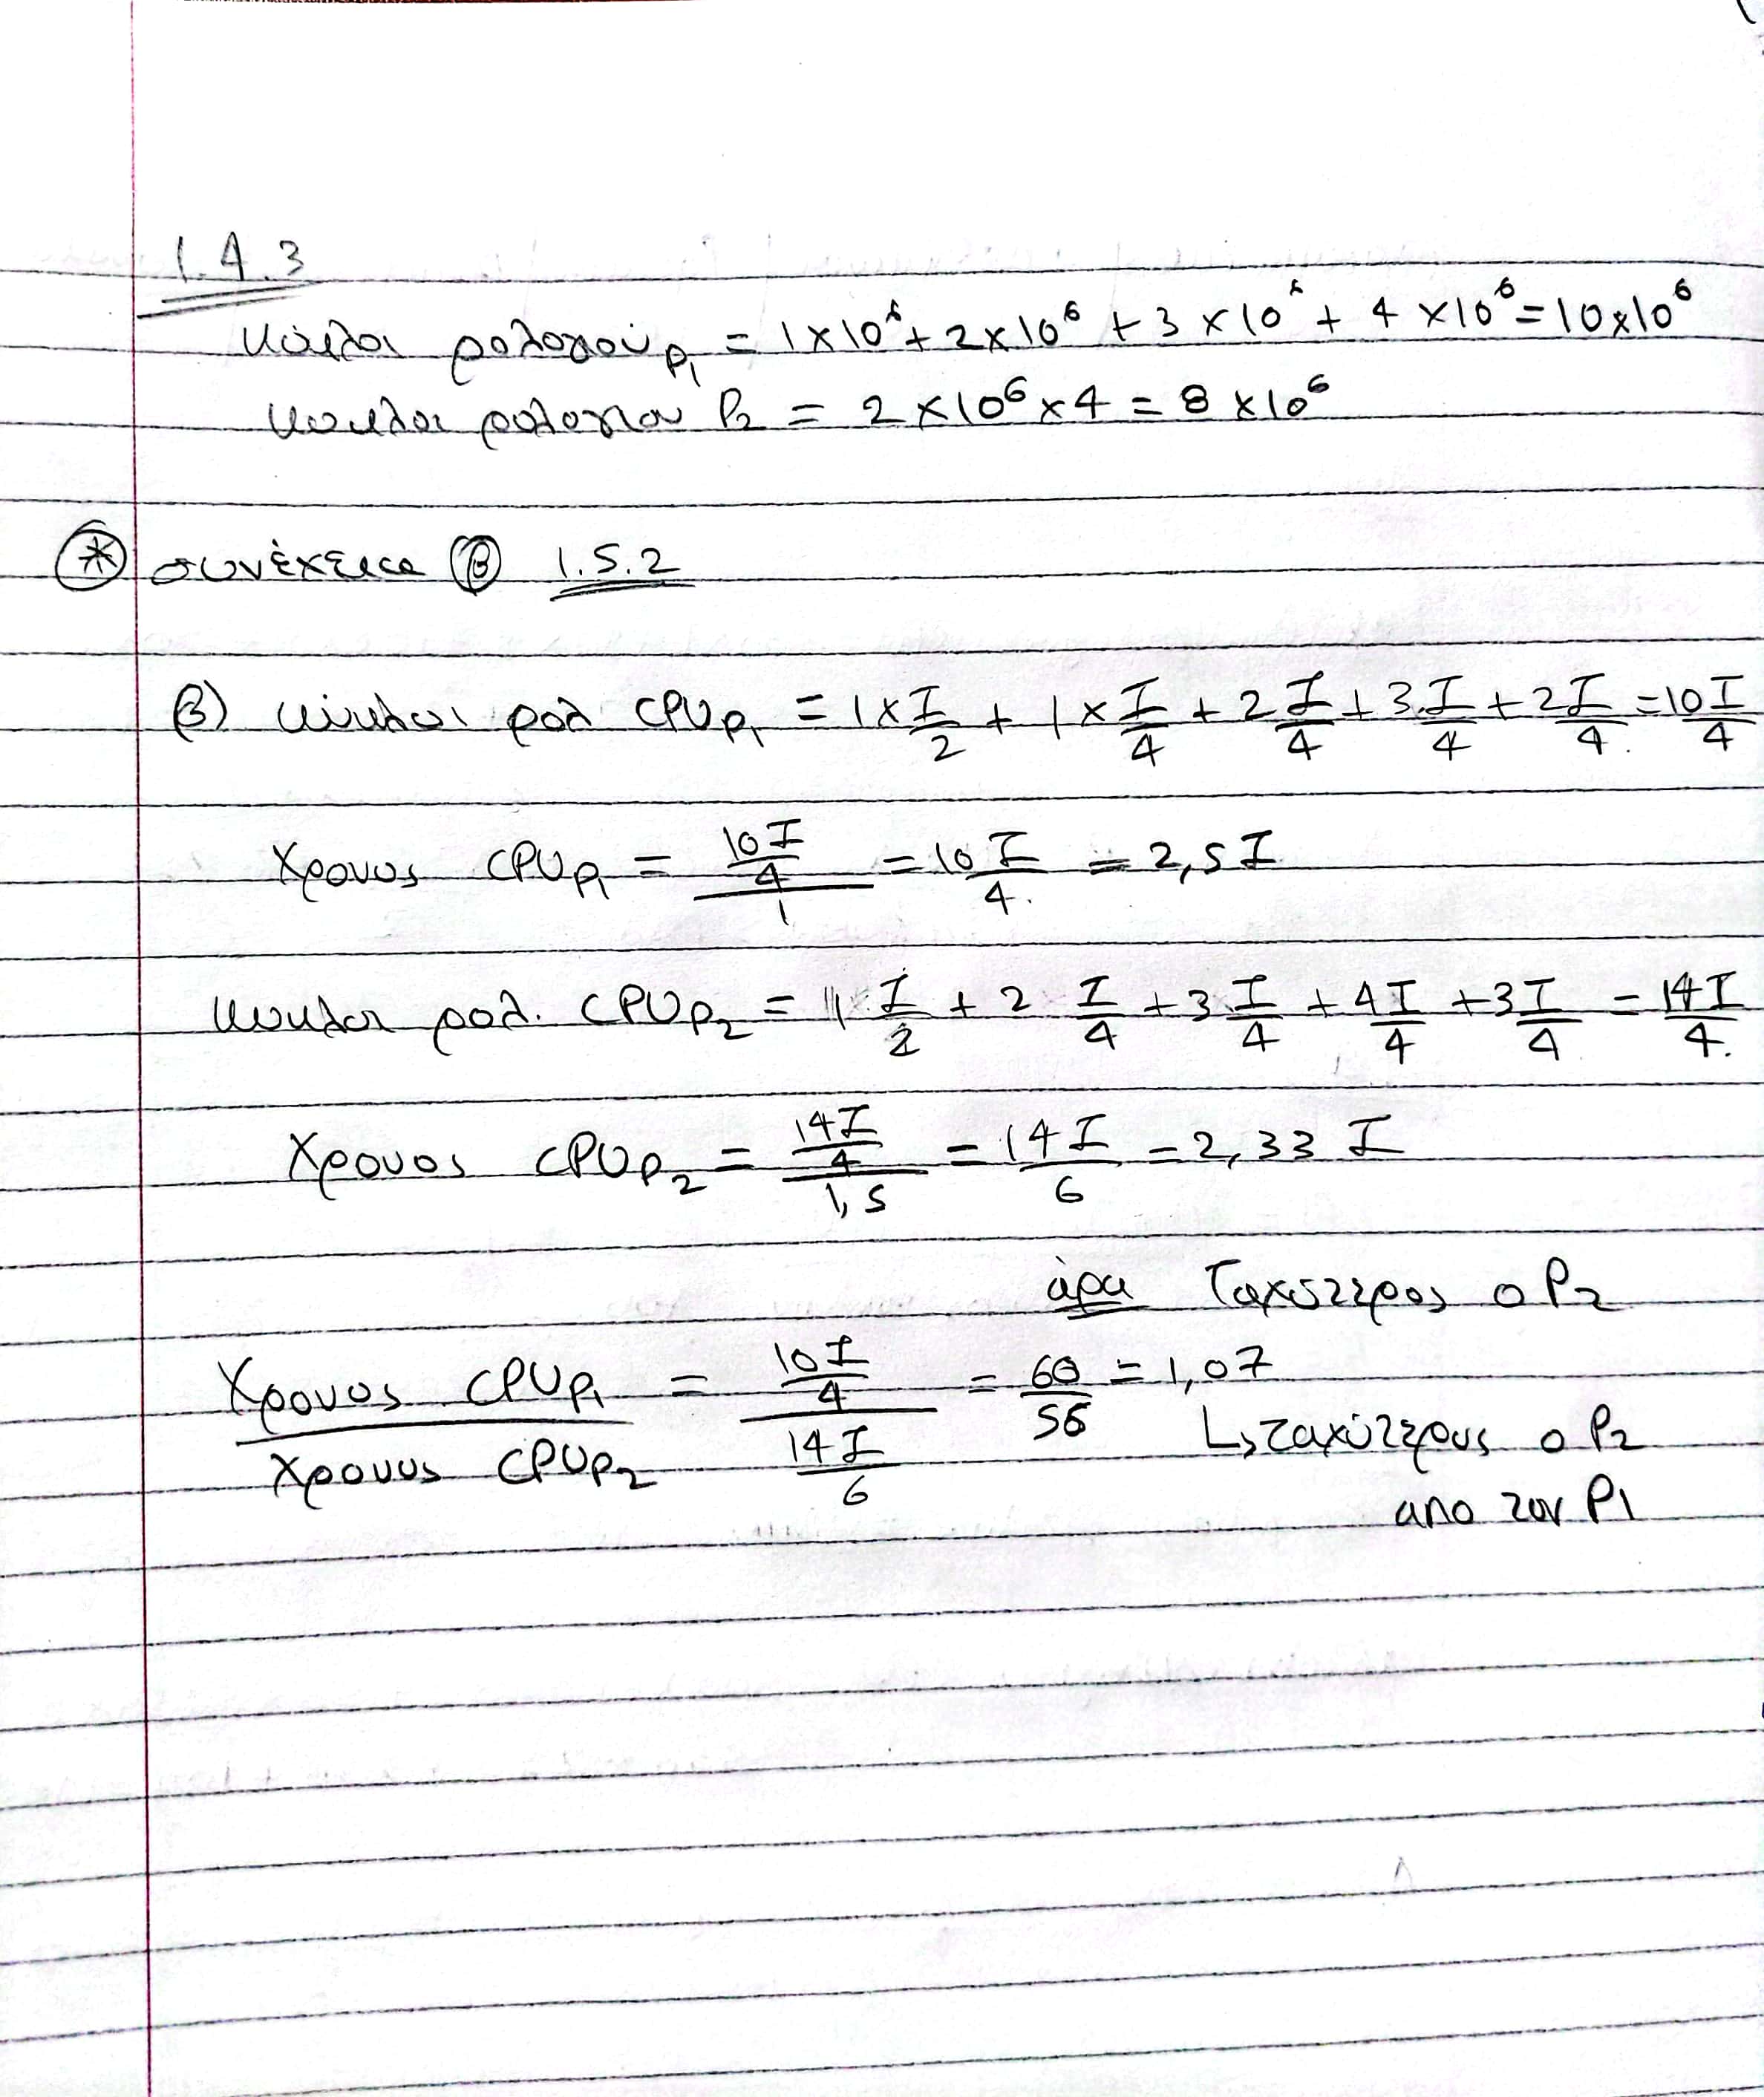 1.4.3
κύκλοι ρολογιού P1 = 1 x 10^6 + 2 x 10^6 + 3 x 10^6 + 4 x 10^6 = 10 x 10^6
κυκλοι ρολογιου P2 = 2 x 10^6 x 4 = 8 x 10^6
* συνέχεια β 1.5.2
β) κύκλοι ρολ CPU P1 = 1 x I/2 + 1 x I/4 + 2 I/4 + 3 I/4 + 2 I/4 = 10 I/4
Χρονος CPU P1 = (10 I/4)/1 = 10 I/4 = 2,5 I
κυκλοι ρολ. CPU P2 = I/2 + 2 I/4 + 3 I/4 + 4 I/4 + 3 I/4 = 14 I/4
Χρονος CPU P2 = (14 I/4)/1,5 = 14 I/6 = 2,33 I
άρα Ταχύτερος ο P2
Χρονος CPU P1 / Χρονος CPU P2 = (10 I/4)/(14 I/6) = 60/56 = 1,07
↳ ταχύτερος ο P2
απο τον P1